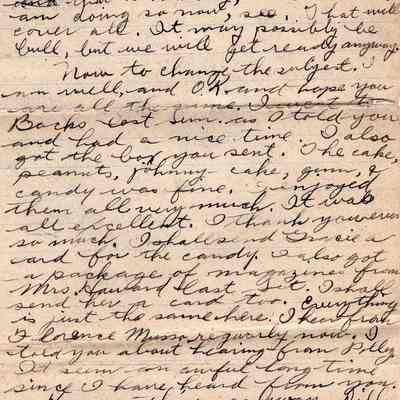 am doing so now, see. That will
cover all. It may possibly be
bull, but we will get ready anyway.
Now to change the subject. I
am well, and O.K. and hope you
are all the same. I went to
Bachs last Sun. as I told you
and had a nice time. I also
got the box you sent. The cake,
peanuts, Johnny-cake, gum, &
candy was fine. I enjoyed
them all very much. It was
all excellent. I thank you ever
so much. I shall send Gracie a
card for the candy. I also got
a package of magazines from
Mrs. Howard last Sat. I shall
send her a card too. Everything
is just the same here. I hear from
Florence Musso regularly now. I
told you about hearing from
It seems an awful long time
since I have heard from you.